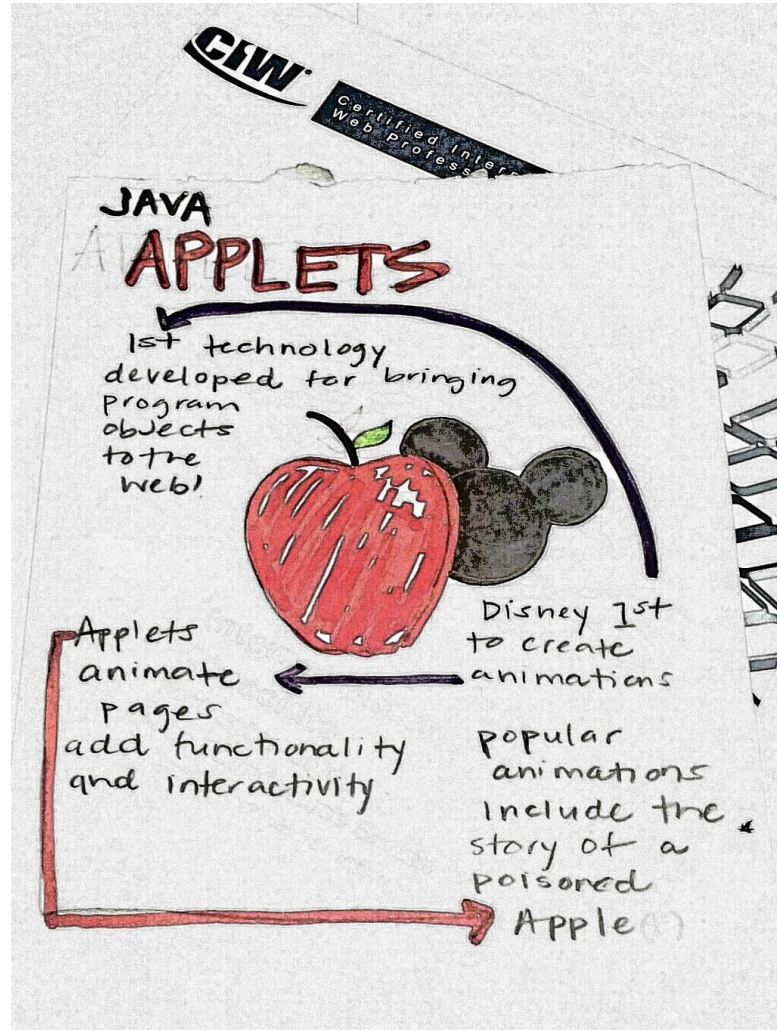 CIW
Certified Inter
Web Profess
JAVA
APPLETS
1st technology
developed for bringing
program
objects
to the
web!
Disney 1st
to create
animations
Applets
animate
pages
add functionality
and interactivity
popular
animations
include the
story of a
poisoned
Apple